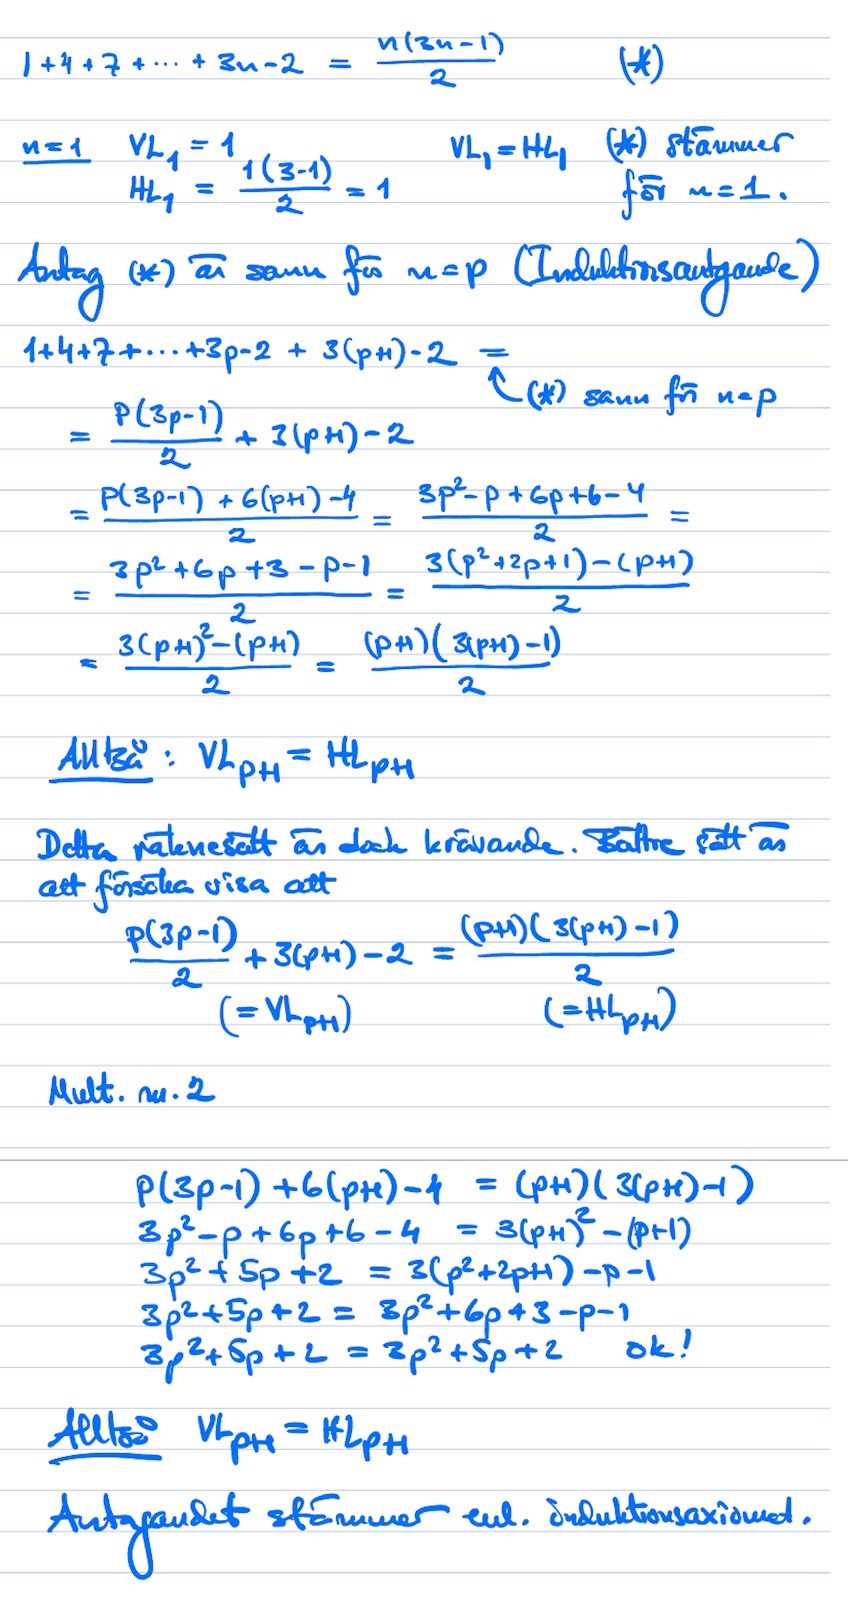 1+4+7+···+3n-2 = n(3n-1)/2 (*)
n=1 VL₁ = 1 VL₁=HL₁ (*) stämmer
HL₁ = 1(3-1)/2 = 1 för n=1.
Antag (*) är sann för n=p (Induktionsantagande)
1+4+7+···+3p-2 + 3(p+1)-2 =
↑ (*) sann för n=p
= p(3p-1)/2 + 3(p+1)-2
= (p(3p-1)+6(p+1)-4)/2 = (3p²-p+6p+6-4)/2 =
= (3p²+6p+3-p-1)/2 = (3(p²+2p+1)-(p+1))/2
= (3(p+1)²-(p+1))/2 = (p+1)(3(p+1)-1)/2
Alltså: VLₚ₊₁ = HLₚ₊₁
Detta räknesätt är dock krävande. Bättre sätt är
att försöka visa att
p(3p-1)/2 + 3(p+1)-2 = (p+1)(3(p+1)-1)/2
(=VLₚ₊₁) (=HLₚ₊₁)
Mult. m. 2
p(3p-1)+6(p+1)-4 = (p+1)(3(p+1)-1)
3p²-p+6p+6-4 = 3(p+1)²-(p+1)
3p²+5p+2 = 3(p²+2p+1)-p-1
3p²+5p+2 = 3p²+6p+3-p-1
3p²+5p+2 = 3p²+5p+2 ok!
Alltså VLₚ₊₁ = HLₚ₊₁
Antagandet stämmer enl. induktionsaxiomet.